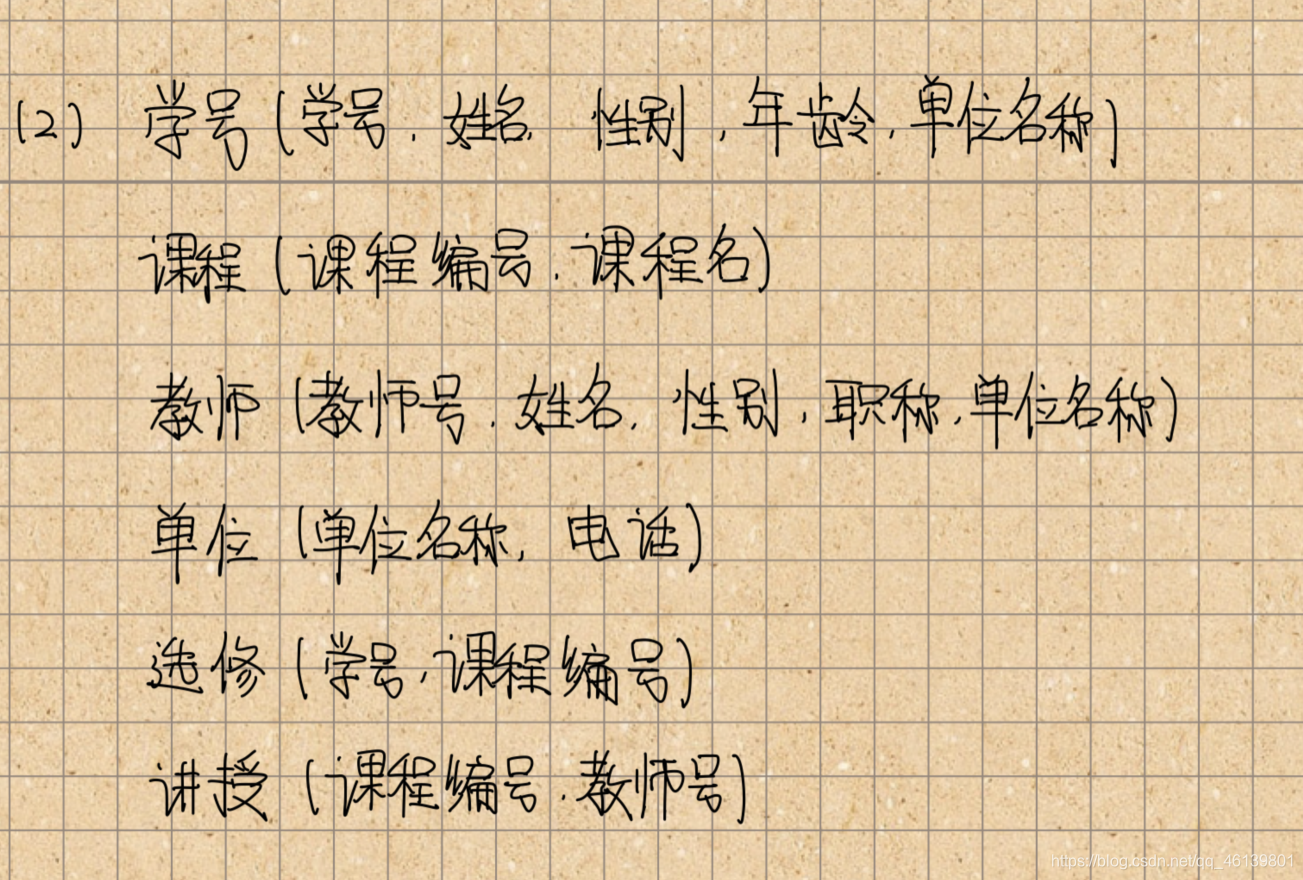 (2) 学号(学号, 姓名, 性别, 年龄, 单位名称)
课程(课程编号, 课程名)
教师(教师号, 姓名, 性别, 职称, 单位名称)
单位(单位名称, 电话)
选修(学号, 课程编号)
讲授(课程编号, 教师号)
https://blog.csdn.net/qq_46139801